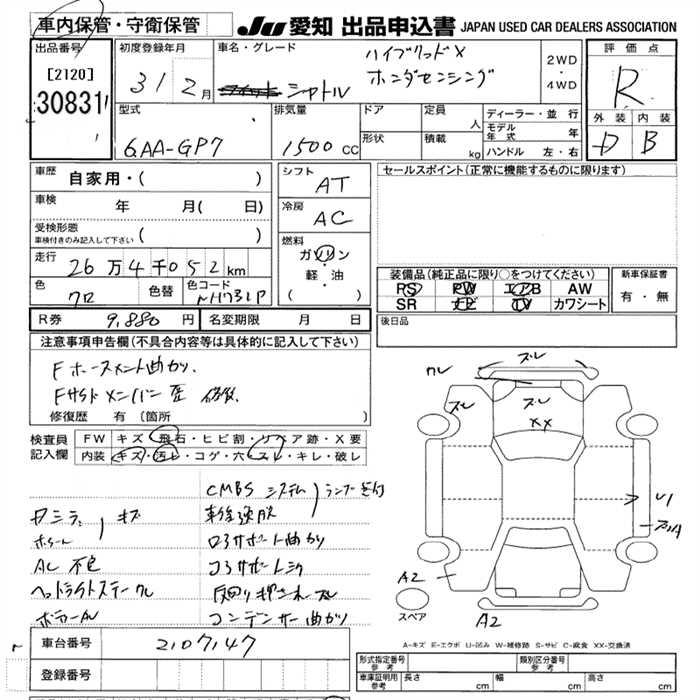 車内保管・守衛保管
JU 愛知 出品申込書 JAPAN USED CAR DEALERS ASSOCIATION
出品番号 初度登録年月 車名・グレード ハイブリッドX 2WD ・ 4WD 評価点
[2120] 31 2月 シャトル ホンダセンシング R
30831
型式 排気量 ドア 定員 人 ディーラー・並行 外装 内装
6AA-GP7 1500CC 形状 積載 kg モデル年式 年 D B
ハンドル 左・右
車歴 自家用・( ) シフト AT セールスポイント(正常に機能するものに限ります)
車検 年 月( 日) 冷房 AC
受検形態 ( )
車検付きのみ記入して下さい
燃料 ガソリン・軽・油 ( )
走行 26万4千052km
装備品(純正品に限り○をつけてください) 新車保証書
色 クロ 色替 色コード NH731P
PS PW エアB AW 有・無
SR ナビ TV カワシート
R券 9,880円 名変期限 月 日 後日品
注意事項申告欄(不具合内容等は具体的に記入して下さい)
Fホースメント曲ガリ.
Fサイドメンバー 修復.
修復歴 有 (箇所 )
検査員記入欄 FW キズ・飛石・ヒビ割・リペア跡・X要
内装 キズ・汚レ・コゲ・穴・スレ・キレ・破レ
CMBSシステム
ランプ点付
キズ
AC不良
ヘッドライトスチール
コアサポート曲ガリ
コンデンサー曲ガリ
ズレ
ズレ
ズレ
XX
U1
A2
A2
スペア
A-キズ E-エクボ U-凹み W-補修跡 S-サビ C-腐食 XX-交換済
車台番号 2107147
登録番号
形式指定番号 参考 類別区分番号 参考
車庫証明用 参考 長さ cm 幅 cm 高さ cm